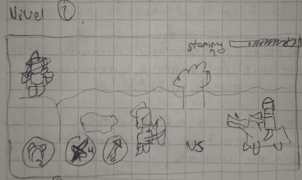 Nivel 1
stamina
VS